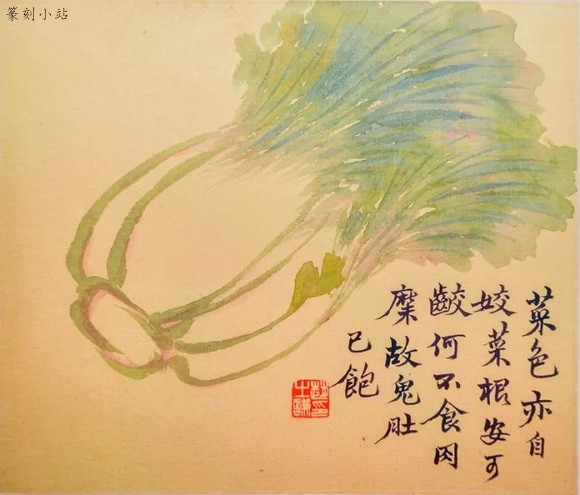 篆刻小站
菜色亦自
姣菜根安可
齩何不食肉
糜故鬼肚
已飽